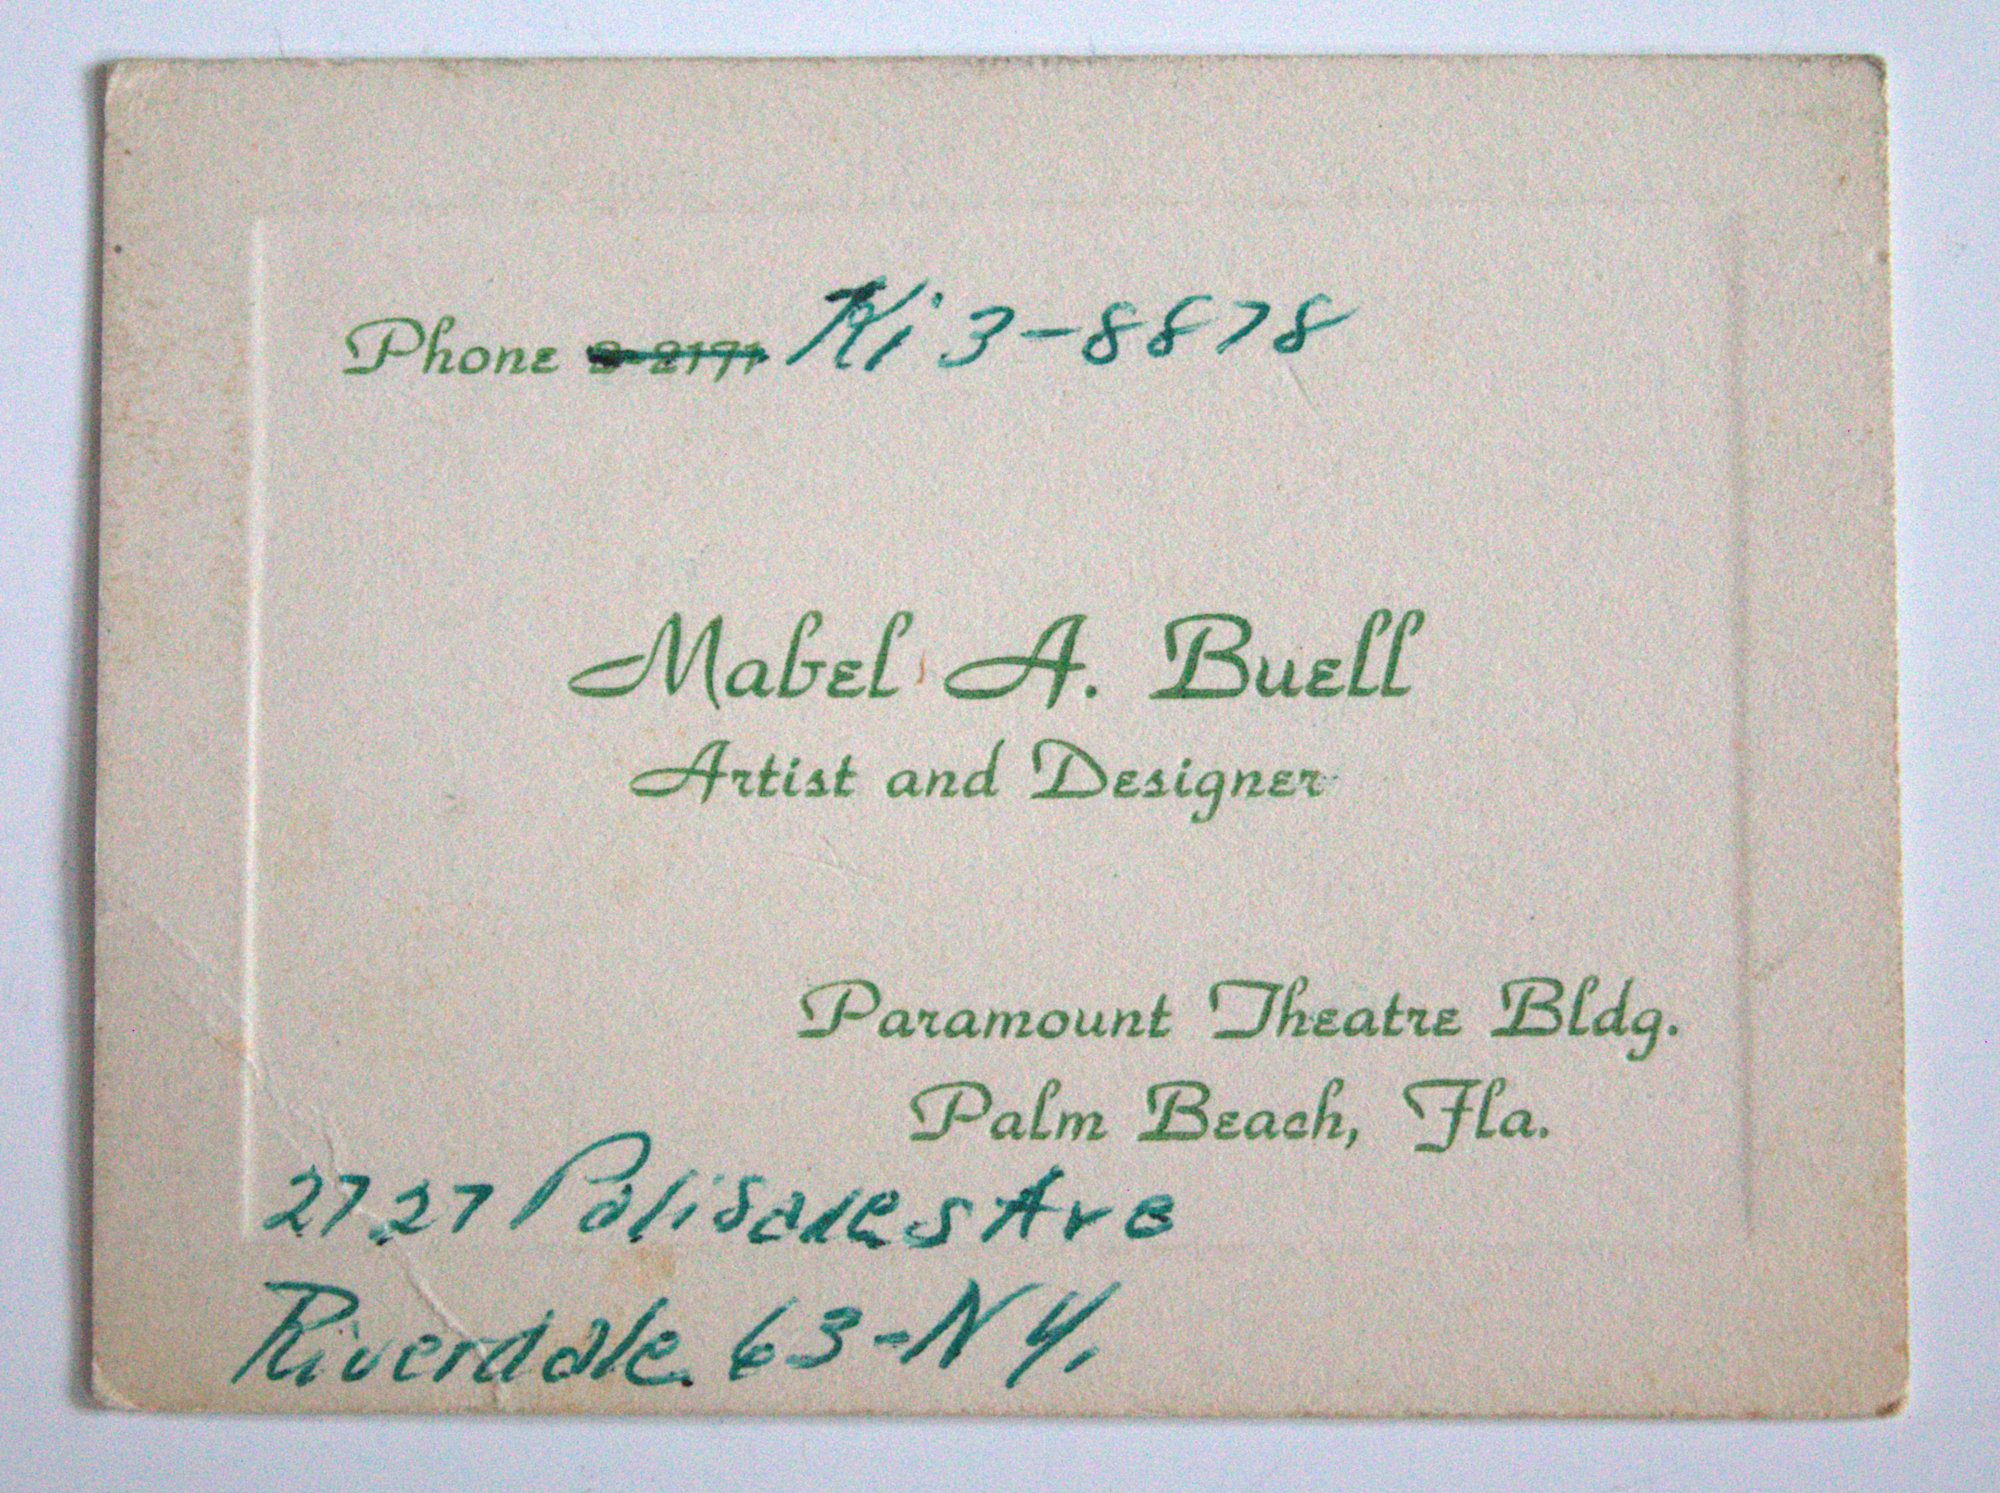 Phone 2-2171 Ki 3-8878
Mabel A. Buell
Artist and Designer
Paramount Theatre Bldg.
Palm Beach, Fla.
2727 Palisades Ave
Riverdale 63-NY.